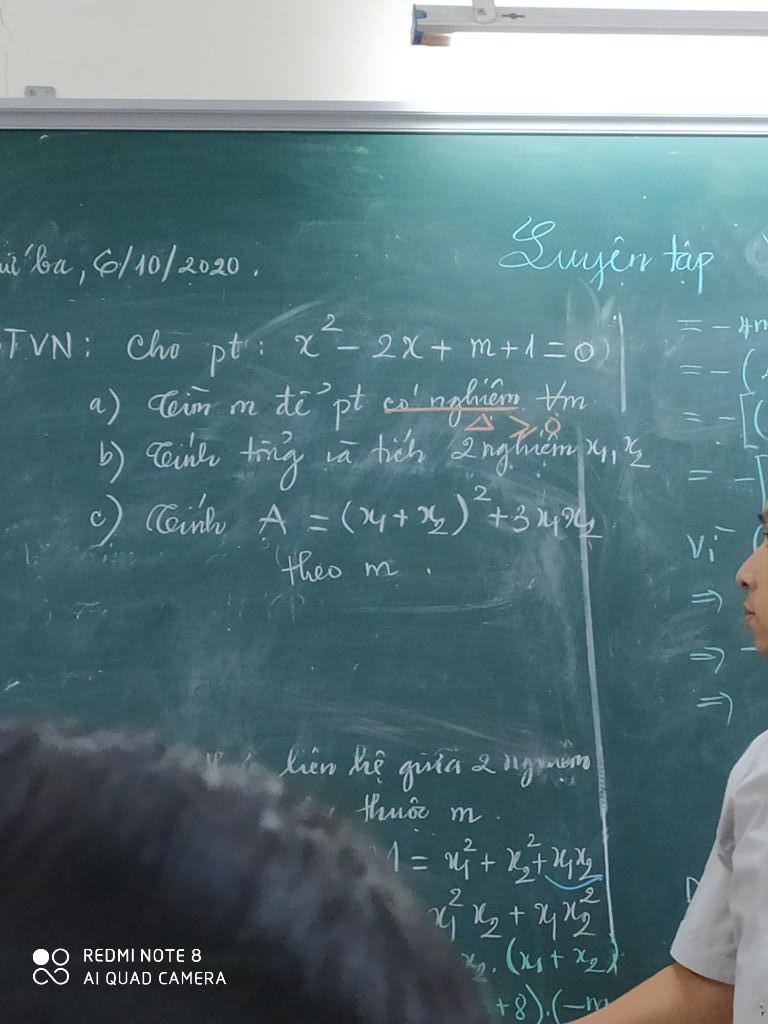 ba, 6/10/2020.
Luyện tập
TVN: Cho pt: x² - 2x + m + 1 = 0
a) Tìm m để pt có nghiệm ∀m
Δ ≥ 0
b) Tính tổng và tích 2 nghiệm x₁, x₂
c) Tính A = (x₁ + x₂)² + 3x₁x₂
theo m.
liên hệ giữa 2 nghiệm
thuộc m.
= x₁² + x₂² + x₁x₂
x₁²x₂ + x₁x₂²
x₂.(x₁ + x₂)
+8).(-m
= - 4m
= - (
= - [(
= - [
Vì (
⇒
⇒
⇒
REDMI NOTE 8
AI QUAD CAMERA